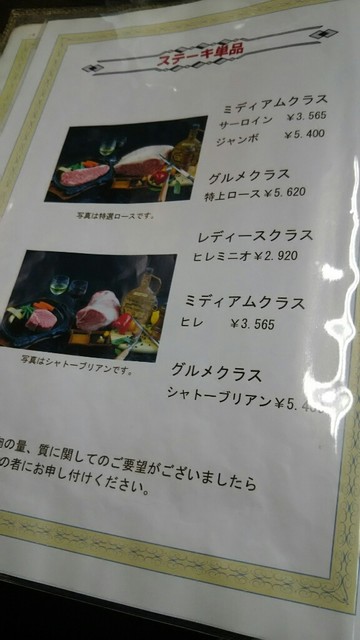 ステーキ単品
ミディアムクラス
サーロイン ￥3.565
ジャンボ ￥5.400
グルメクラス
特上ロース￥5.620
写真は特選ロースです。
レディースクラス
ヒレミニオ￥2.920
ミディアムクラス
ヒレ ￥3.565
グルメクラス
シャトーブリアン￥5.4
写真はシャトーブリアンです。
の量、質に関してのご要望がございましたら
の者にお申し付けください。